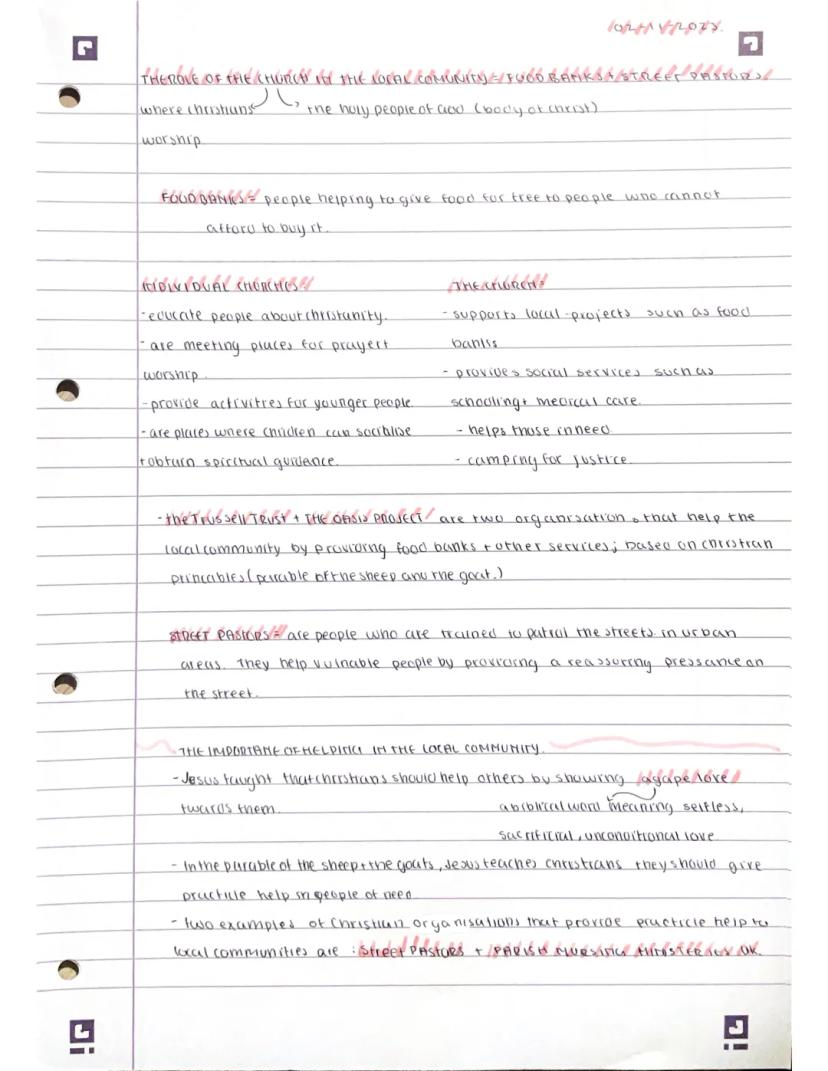 02-11-2022.
THE ROLE OF THE CHURCH IN THE LOCAL COMUNITY = FOOD BANKS + STREET PASTORS
where christians the holy people of God (body of christ)
worship
FOOD BANKS = people helping to give food for free to people who cannot
afford to buy it.
INDIVIDUAL CHURCHES THE CHURCH:
- educate people about christianity. - supports local projects such as food
- are meeting places for prayer + banks
worship. - provides social services such as
- provide activities for younger people. schooling + medical care.
- are places where children can socialise - helps those in need
+ obtain spiritual guidance. - camping for justice.
- the Trussell Trust + THE OASIS PROJECT are two organisations that help the
local community by providing food banks + other services; based on christian
principles (parable of the sheep and the goat.)
STREET PASTORS = are people who are trained to patrol the streets in urban
areas. They help vulnable people by providing a reassuring pressance on
the street.
THE IMPORTANE OF HELPING IN THE LOCAL COMMUNITY.
- Jesus taught that christians should help others by showing agape love
twards them. a biblical word meaning selfless,
sacrificial, unconditional love
- In the parable of the sheep + the goats, Jesus teaches christians they should give
practicle help in people of need
- two examples of Christian organisations that provide practicle help to
local communities are : Street PASTORS + PARISH NURSING MINISTERIES UK.